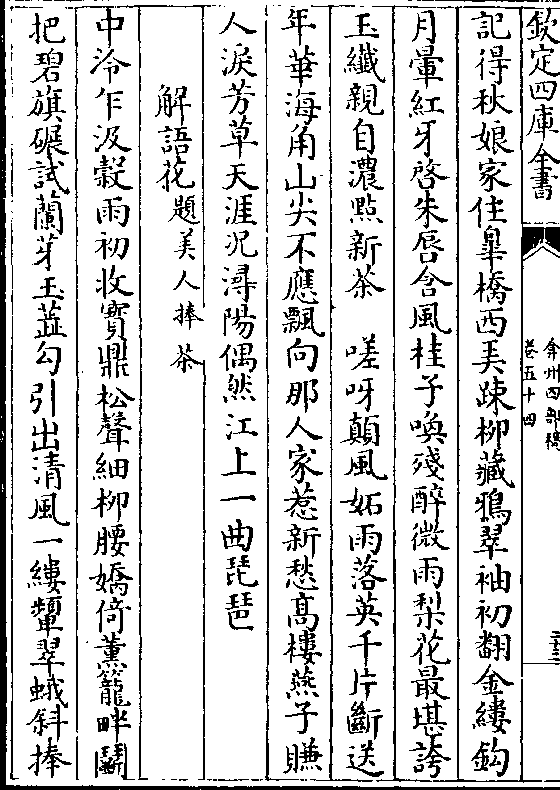 欽定四庫全書
弇州四部稿
卷五十四
記得秋娘家住臯橋西弄踈柳藏鴉翠袖初翻金縷鈎
月暈紅牙啓朱唇含風桂子喚殘醉微雨梨花最堪誇
玉纖親自濃點新茶　嗟呀顛風妬雨落英千片斷送
年華海角山尖不應飄向那人家惹新愁高樓燕子賺
人淚芳草天涯况潯陽偶然江上一曲琵琶
解語花題美人捧茶
中泠乍汲穀雨初收寶鼎松聲細柳腰嬌倚薰籠畔鬭
把碧旗碾試蘭芽玉蘂勾引出清風一縷顰翠蛾斜捧